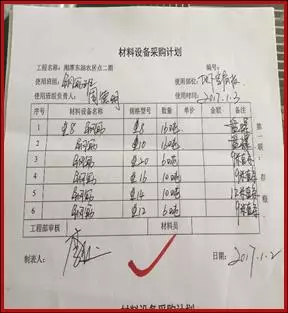 材料设备采购计划
工程名称：湘潭东湖农居点二期
使用班组：钢筋班 使用部位：地下室底板
使用班组负责人：周德明 使用时间：2017.1.3
序号 材料设备名称 规格型号 数量 单价 金额 备注
1 钢筋 8 16吨 盘螺
2 钢筋 10 16吨 盘螺
3 钢筋 20 60吨 9米直条
4 钢筋 16 10吨
5 钢筋 14 10吨
6 钢筋 12 60吨
第一联：存根
工程部审核 材料员
制表人： 日期：2017.1.2
材料设备采购计划